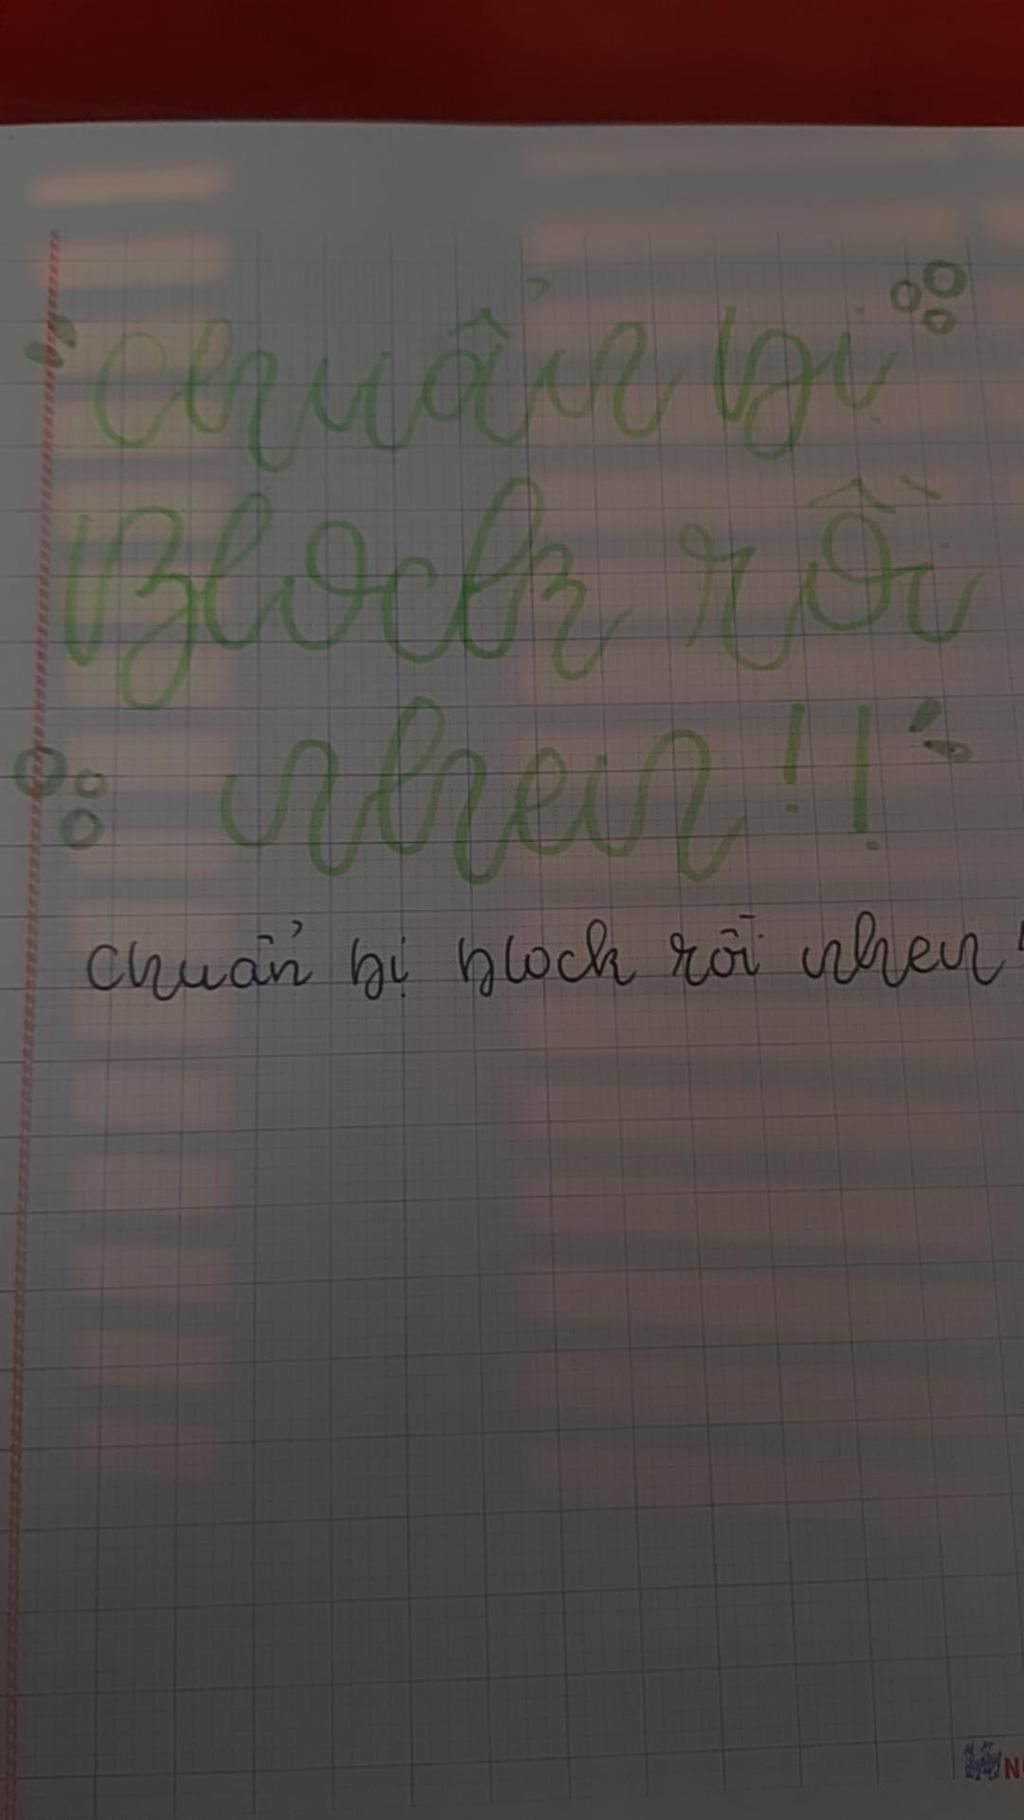 chuẩn bị
Block rồi
nhen!!
chuẩn bị block rồi nhen!